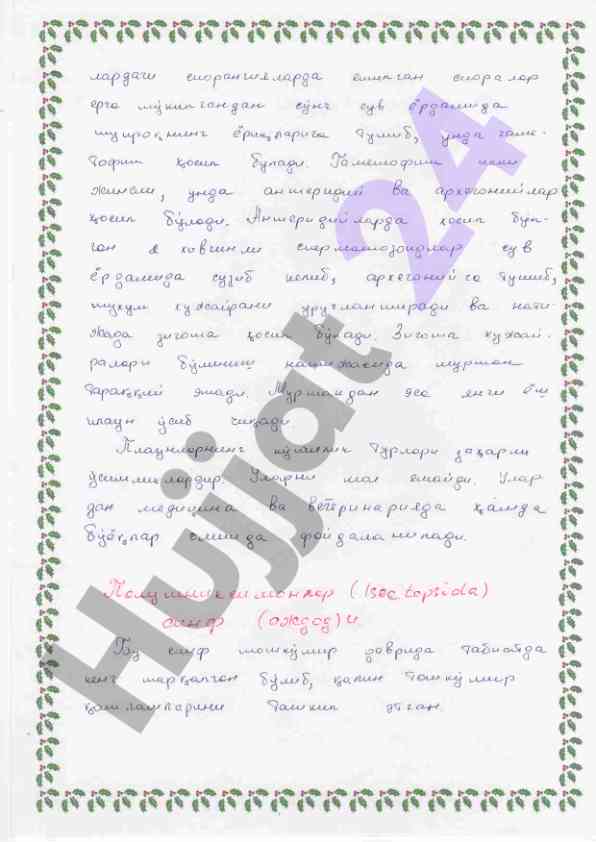 лардаги спорангияларда етилган споралар
ерга тўкилгандан сўнг сув ёрдамида
тупроқнинг ёриқларига тушиб, унда гаме-
тофит ҳосил бўлади. Гаметофит икки
жинсли, унда антеридий ва архегонийлар
ҳосил бўлади. Антеридийларда хосил бўл-
ган 2 хивчинли сперматозоидлар сув
ёрдамида сузиб келиб, архегонийга тушиб,
тухум хужайрани уруғлантиради ва нати-
жада зигота ҳосил бўлади. Зигота хужай-
ралари бўлиниш натижасида муртак
тараққий этади. Муртакдан эса янги ёш
плаун ўсиб чиқади.
Плаунларнинг кўпчилик турлари заҳарли
ўсимликлардир. Уларни мол емайди. Улар
дан медицина ва ветеринарияда ҳамда
бўёқлар олишда фойдаланилади.
Полушниксимонлар (Isoetopsida)
синф (аждод)и.
Бу синф тошкўмир даврида табиатда
кенг тарқалган бўлиб, қалин тошкўмир
қатламларини ташкил этган.
Hujjat 24